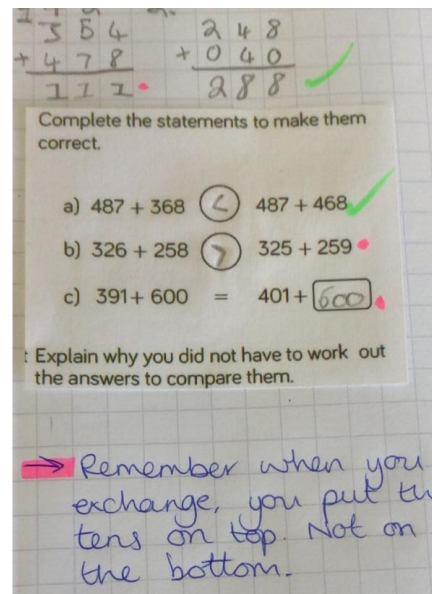 354     248
+ 478     + 040
111     288
Complete the statements to make them
correct.
a) 487 + 368 < 487 + 468
b) 326 + 258 > 325 + 259
c) 391+ 600 = 401+ 600
: Explain why you did not have to work out
the answers to compare them.
→ Remember when you
exchange, you put
tens on top. Not on
the bottom.